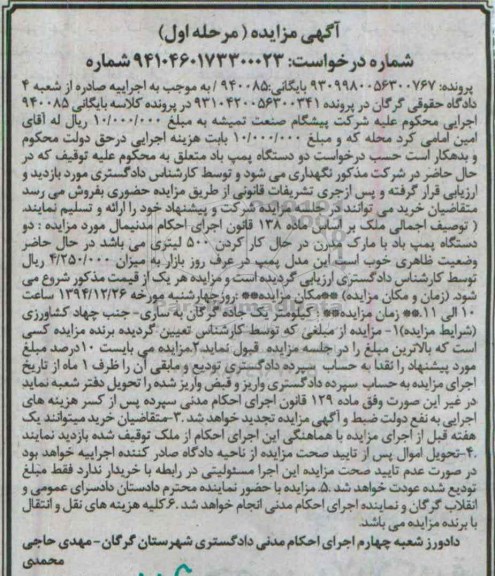 آگهی مزایده ( مرحله اول)
شماره درخواست: ۹۴۱۰۴۶۰۱۷۳۳۰۰۰۲۳ شماره
پرونده: ۹۳۰۹۹۸۰۰۵۶۳۰۰۷۶۷ بایگانی:۹۴۰۰۸۵ / به موجب به اجراییه صادره از شعبه ۴
دادگاه حقوقی گرگان در پرونده ۹۳۱۰۴۲۰۰۵۶۳۰۰۳۴۱ در پرونده کلاسه بایگانی ۹۴۰۰۸۵
اجرایی محکوم علیه شرکت پیشگام صنعت تمیشه به مبلغ ۱۰/۰۰۰/۰۰۰ ریال له آقای
امین امامی کرد محله که و مبلغ ۱۰/۰۰۰/۰۰۰ بابت هزینه اجرایی درحق دولت محکوم
و بدهکار است حسب درخواست دو دستگاه پمپ باد متعلق به محکوم علیه توقیف که در
حال حاضر در شرکت مذکور نگهداری می شود و توسط کارشناس دادگستری مورد بازدید و
ارزیابی قرار گرفته و پس ازجری تشریفات قانونی از طریق مزایده حضوری بفروش می رسد
متقاضیان خرید می توانند در جلسه مزایده شرکت و پیشنهاد خود را ارائه و تسلیم نمایند.
( توصیف اجمالی ملک بر اساس ماده ۱۳۸ قانون اجرای احکام مدنیمال مورد مزایده : دو
دستگاه پمپ باد با مارک مدرن در حال کار کردن ۵۰۰ لیتری می باشد در حال حاضر
وضعیت ظاهری خوب است این مدل پمپ در عرف روز بازار به میزان ۴/۲۵۰/۰۰۰ ریال
توسط کارشناس دادگستری ارزیابی گردیده است و مزایده هر یک از قیمت مذکور شروع می
شود. (زمان و مکان مزایده) **مکان مزایده** :روزچهارشنبه مورخه ۱۳۹۴/۱۲/۲۶ ساعت
۱۰ الی ۱۱.** زمان مزایده** : کیلومتر یک جاده گرگان به ساری- جنب جهاد کشاورزی
(شرایط مزایده)۱- مزایده از مبلغی که توسط کارشناس تعیین گردیده برنده مزایده کسی
است که بالاترین مبلغ را در جلسه مزایده قبول نماید.۲.مزایده می بایست ۱۰درصد مبلغ
مورد پیشنهاد را نقدا به حساب سپرده دادگستری تودیع و مابقی آن را ظرف ۱ ماه از تاریخ
اجرای مزایده به حساب سپرده دادگستری واریز و قبض واریز شده را تحویل دفتر شعبه نماید
در غیر این صورت وفق ماده ۱۲۹ قانون اجرای احکام مدنی سپرده پس از کسر هزینه های
اجرایی به نفع دولت ضبط و آگهی مزایده تجدید خواهد شد .۳-متقاضیان خرید میتوانند یک
هفته قبل از اجرای مزایده با هماهنگی این اجرای احکام از ملک توقیف شده بازدید نمایند
.۴-تحویل اموال پس از تایید صحت مزایده از ناحیه دادگاه صادر کننده اجراییه خواهد بود
در صورت عدم تایید صحت مزایده این اجرا مسئولیتی در رابطه با خریدار ندارد فقط مبلغ
تودیع شده عودت خواهد شد .۵. مزایده با حضور نماینده محترم دادستان دادسرای عمومی و
انقلاب گرگان و نماینده اجرای احکام مدنی انجام خواهد شد .۶.کلیه هزینه های نقل و انتقال
با برنده مزایده می باشد.
دادورز شعبه چهارم اجرای احکام مدنی دادگستری شهرستان گرگان- مهدی حاجی
محمدی